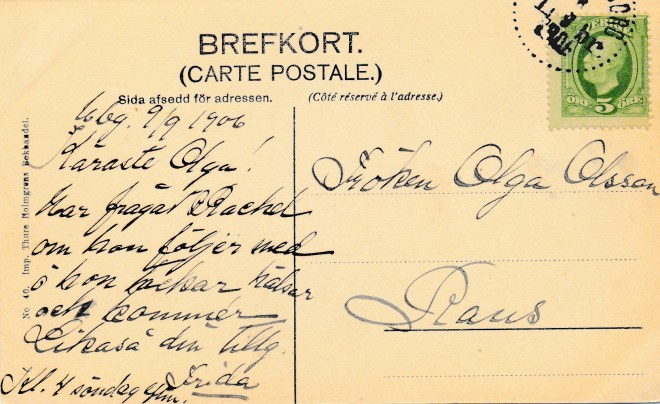 BREFKORT.
(CARTE POSTALE.)
Sida afsedd för adressen.
(Côté réservé à l'adresse.)
SVERIGE
ÖRE 5 ÖRE
No 40. Imp. Thure Holmgrens Bokhandel.
Hbg. 9/9 1906
Käraste Olga!
Har frågat Rachel
om hon följer med
å hon tackar hälsar
och kommer
Likaså din tillg.
Frida
Kl. 4 söndag efm.
Fröken Olga Olsson
Raus